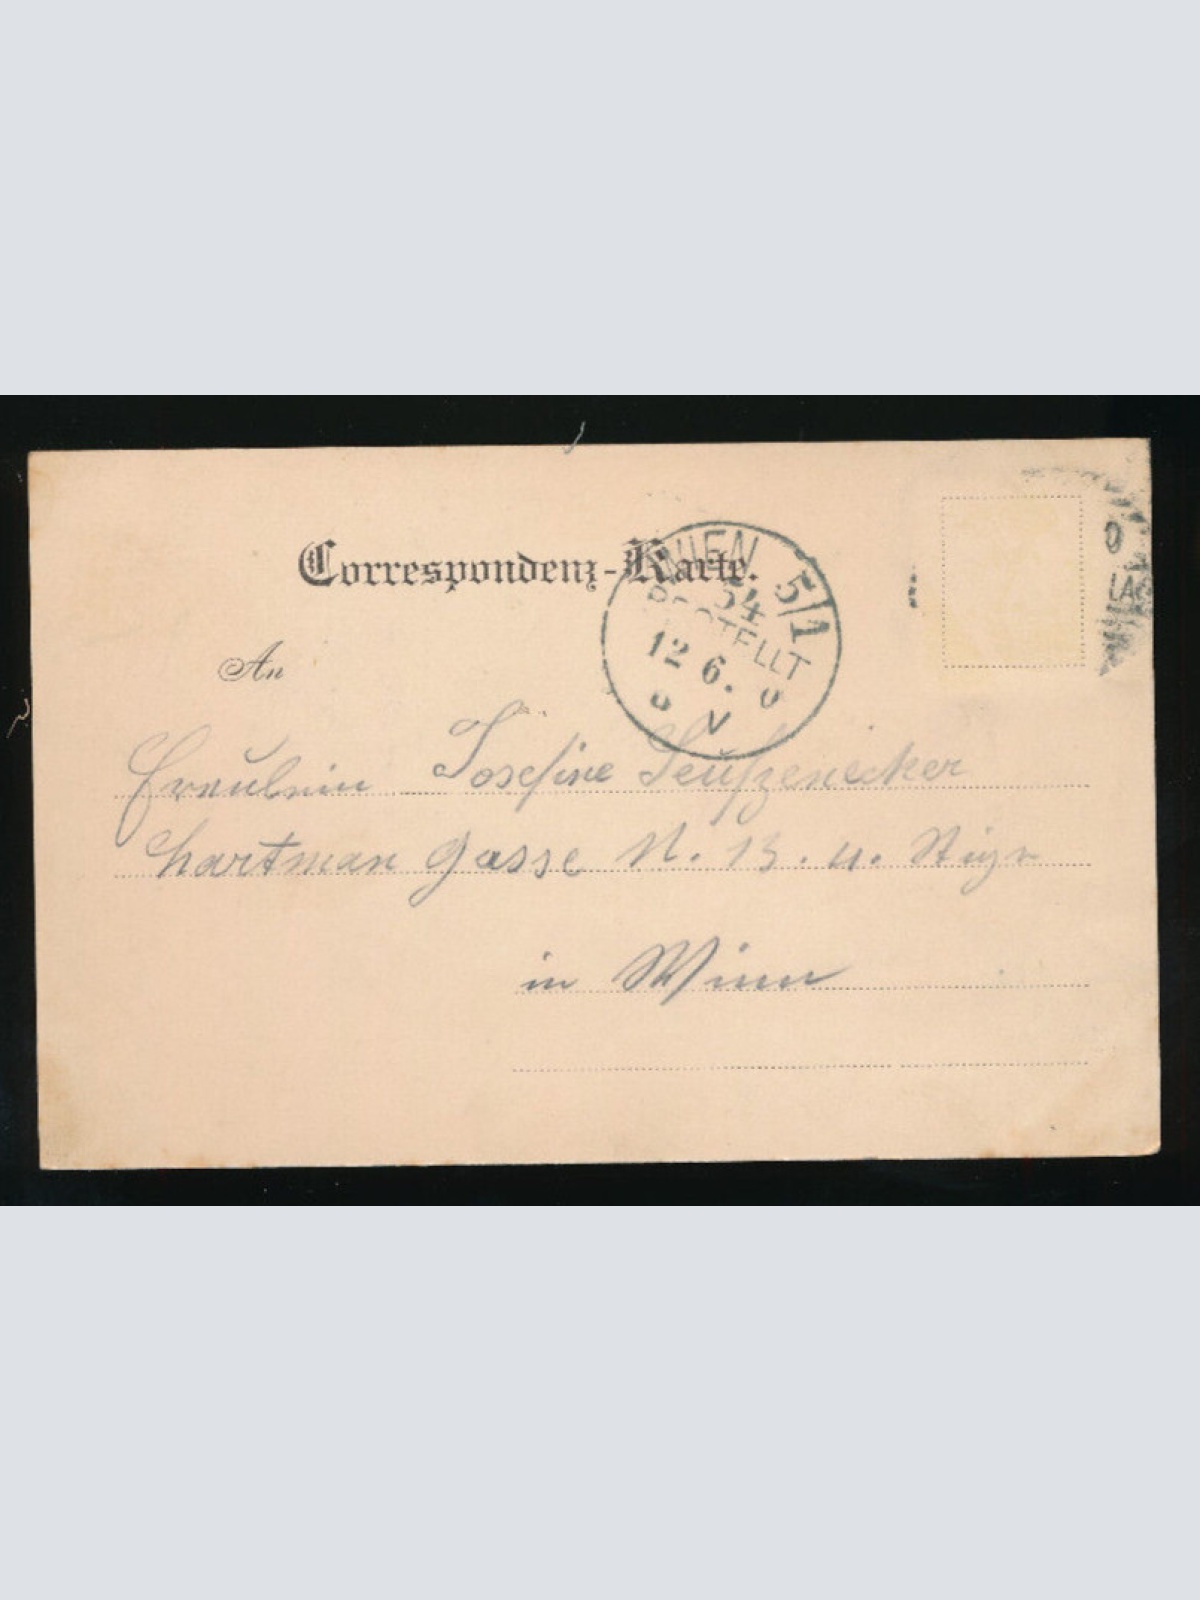 Correspondenz-Karte.
WIEN 5/1
54
BESTELLT
12 6.
V
LAG
An
Fräulein Josefine
hartman gasse N. 13. 4. Stige
in Wien